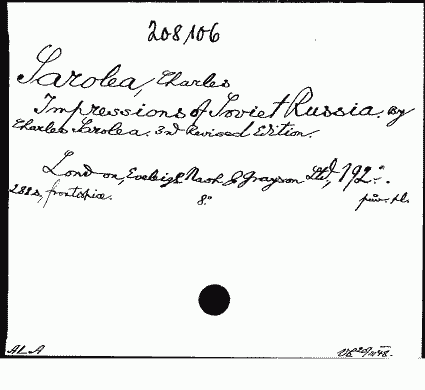 208106
Sarolea, Charles
Impressions of Soviet Russia. By
Charles Sarolea. 3rd Revised Edition.
London, Eveleigh Nash & Grayson Ltd, 192-.
288 s, frontispiz. 8°
ALA